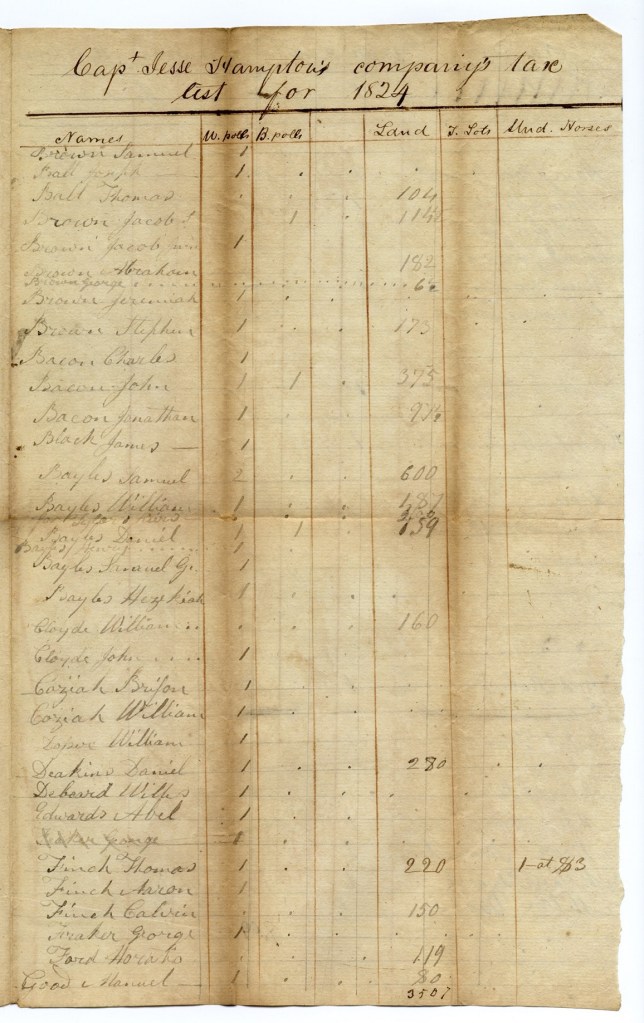 Capt Jesse Hampton's company's tax
list for 1824
Names W. polls B. polls Land T. Lots Und. Horses
Brown Samuel 1
Ball Joseph 1
Ball Thomas 104
Brown Jacob 1
Brown Jacob 1
Brown Abraham 182
Brown George
Brown Jeremiah 1
Brown Stephen 1 175
Bacon Charles 1
Bacon John 1 1 375
Bacon Jonathan 1
Black James — 1
Bayles Samuel 2 600
Bayles William 1 187
Bayles Daniel 1 1 159
Bayles Henry 1
Bayles Samuel G. 1
Bayles Hezekiah 1
Cloyde William 160
Cloyde John 1
Coziah Brison 1
Coziah William 1
William 1
Deakins Daniel 1 280
Debeard Willis 1
Edwards Abel 1
George 1
Finch Thomas 1 220 1 at $3
Finch Aaron 1
Finch Calvin 150
Fraker George 1
Ford Horatio 119
Good Manuel — 1 80
3507